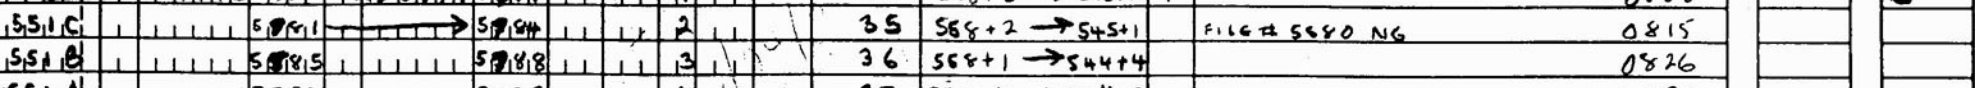 551C 5781 → 5784 2 35 568+2 → 545+1 FILE # 5680 NG 0815
551B 5785 5788 3 36 568+1 → 544+4 0826